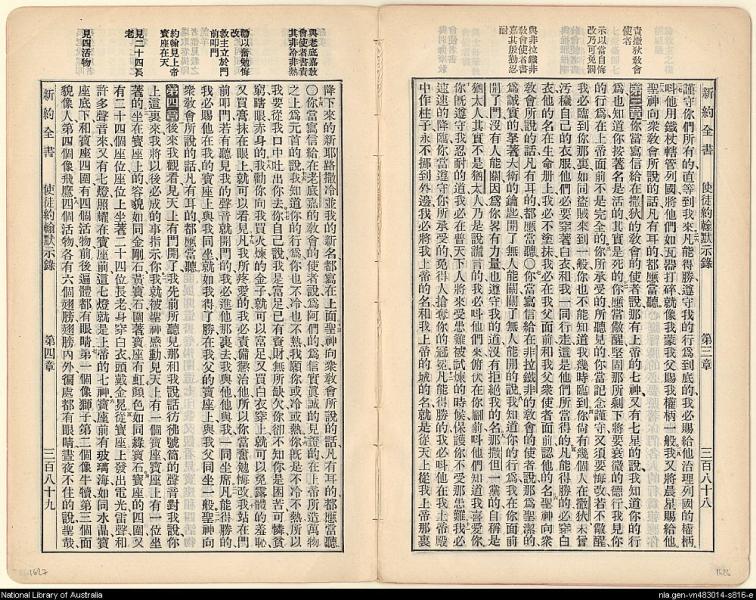 責撒狄教會
使者
示以當自悔
改乃可免罰
與非拉鐵非
教會使者書
嘉其原勤忍
耐
新約全書
使徒約翰默示錄
第三章
三百八十八
謹守你們所有的直等到我來凡能得勝又遵守我的行爲到底的我必賜給他治理列國的權柄
叫他用鐵杖轄管列國將他們如瓦器打碎就像我蒙我父賜我權柄一般我又將晨星賜給他
聖神向衆教會所說的話凡有耳的都應當聽
第三章你當寫信給在撒狄的教會的使者說那有上帝的七神又有七星的說我知道你的行
爲也知道你按著名是活的其實是死的你應當儆醒堅固那所剩下將要衰微的德行我見你
的行爲在上帝面前不是完全的你所承受的所聽見的你當記念謹守又須要悔改若不儆醒
我必臨到你那裏如同盜賊來到一般你也不能知道我幾時臨到你尙有幾個人在撒狄未曾
污穢自己的衣服他們必要穿著白衣和我一同行走這是他們所當得的凡能得勝的必穿白
衣他的名在生命冊上我必不塗抹我必在我父面前和我父衆使者面前認他的名聖神向衆
教會所說的話凡有耳的都應當聽〇你當寫信給在非拉鐵非的教會的使者說那爲聖潔的
爲誠實的拿著大衛的鑰匙開了無人能關關了無人能開的說我知道你的行爲我在你面前
開了門沒有人能關因爲你畧有力量也遵守我的道沒有拒絕我的名那撒但一黨的自稱是
猶太人其實不是猶太人乃是說謊言的我必叫他們來俯伏在你脚前叫他們知道我喜愛你
你旣遵守我忍耐的道我必在普天下人將來受患難被試煉的時候保護你不受那患難我必
速速的降臨你當遵守你所承受的免得人搶奪你的冠冕凡能得勝的我必叫他在我上帝殿
中作柱子永不挪到外邊我必將我上帝的名和我上帝的城的名就是從天上從我上帝那裏
與老底嘉教
會使者書責
其非冷非熱
勸以奮勉悔
改
救主立於門
前叩門
約翰見上帝
寶座在天
見二十四長
老
見四活物
新約全書
使徒約翰默示錄
第四章
三百八十九
降下來的新耶路撒冷並我的新名都寫在上面聖神向衆教會所說的話凡有耳的都應當聽
〇你當寫信給在老底嘉的教會的使者說爲阿們的爲信實眞誠的見證的在上帝所造萬物
之上爲元首的說我知道你的行爲你也不冷也不熱我願你或冷或熱你旣是不冷不熱所以
我要從我口中吐出你去你自己說我是富足已有貲財無所缺欠你卻不知你是困苦可憐貧
窮瞎眼赤身的我勸你向我買火煉的金子就可以富足又買白衣穿上就可以免露體的羞恥
又買膏抹在眼上就可以看見凡我所疼愛的我必責備懲治他所以你當奮勉悔改我站在門
前叩門若有聽見我的聲音就開門的我必進他那裏去我與他他與我一同坐席凡能得勝的
我必賜他在我的寶座上與我同坐就如我得了勝在我父的寶座上與我父同坐一般聖神向
衆教會所說的話凡有耳的都應當聽
第四章後來我觀看見天上有門開了我先前所聽見那和我說話彷彿號筒的聲音對我說你
上這裏來我將以後必成的事指示你我就被聖神感動見天上有一個寶座寶座上有一位坐
著的坐在寶座上的容貌如同金剛石黃寶石圍著寶座有虹顏色如同綠寶石寶座的四圍又
有二十四個座位座位上坐著二十四位長老身穿白衣頭戴金冕從寶座上發出電光雷聲和
許多聲音來又有七燈照耀在寶座前這七燈就是上帝的七神寶座前有玻璃海如同水晶寶
座底下和寶座四圍有四個活物前後遍體都有眼睛第一個像獅子第二個像牛犢第三個面
貌像人第四個像飛鷹四個活物各有六個翅膀翅膀內外徧處都有眼睛晝夜不住的說聖哉
1627
National Library of Australia
nla.gen-vn483014-s816-e